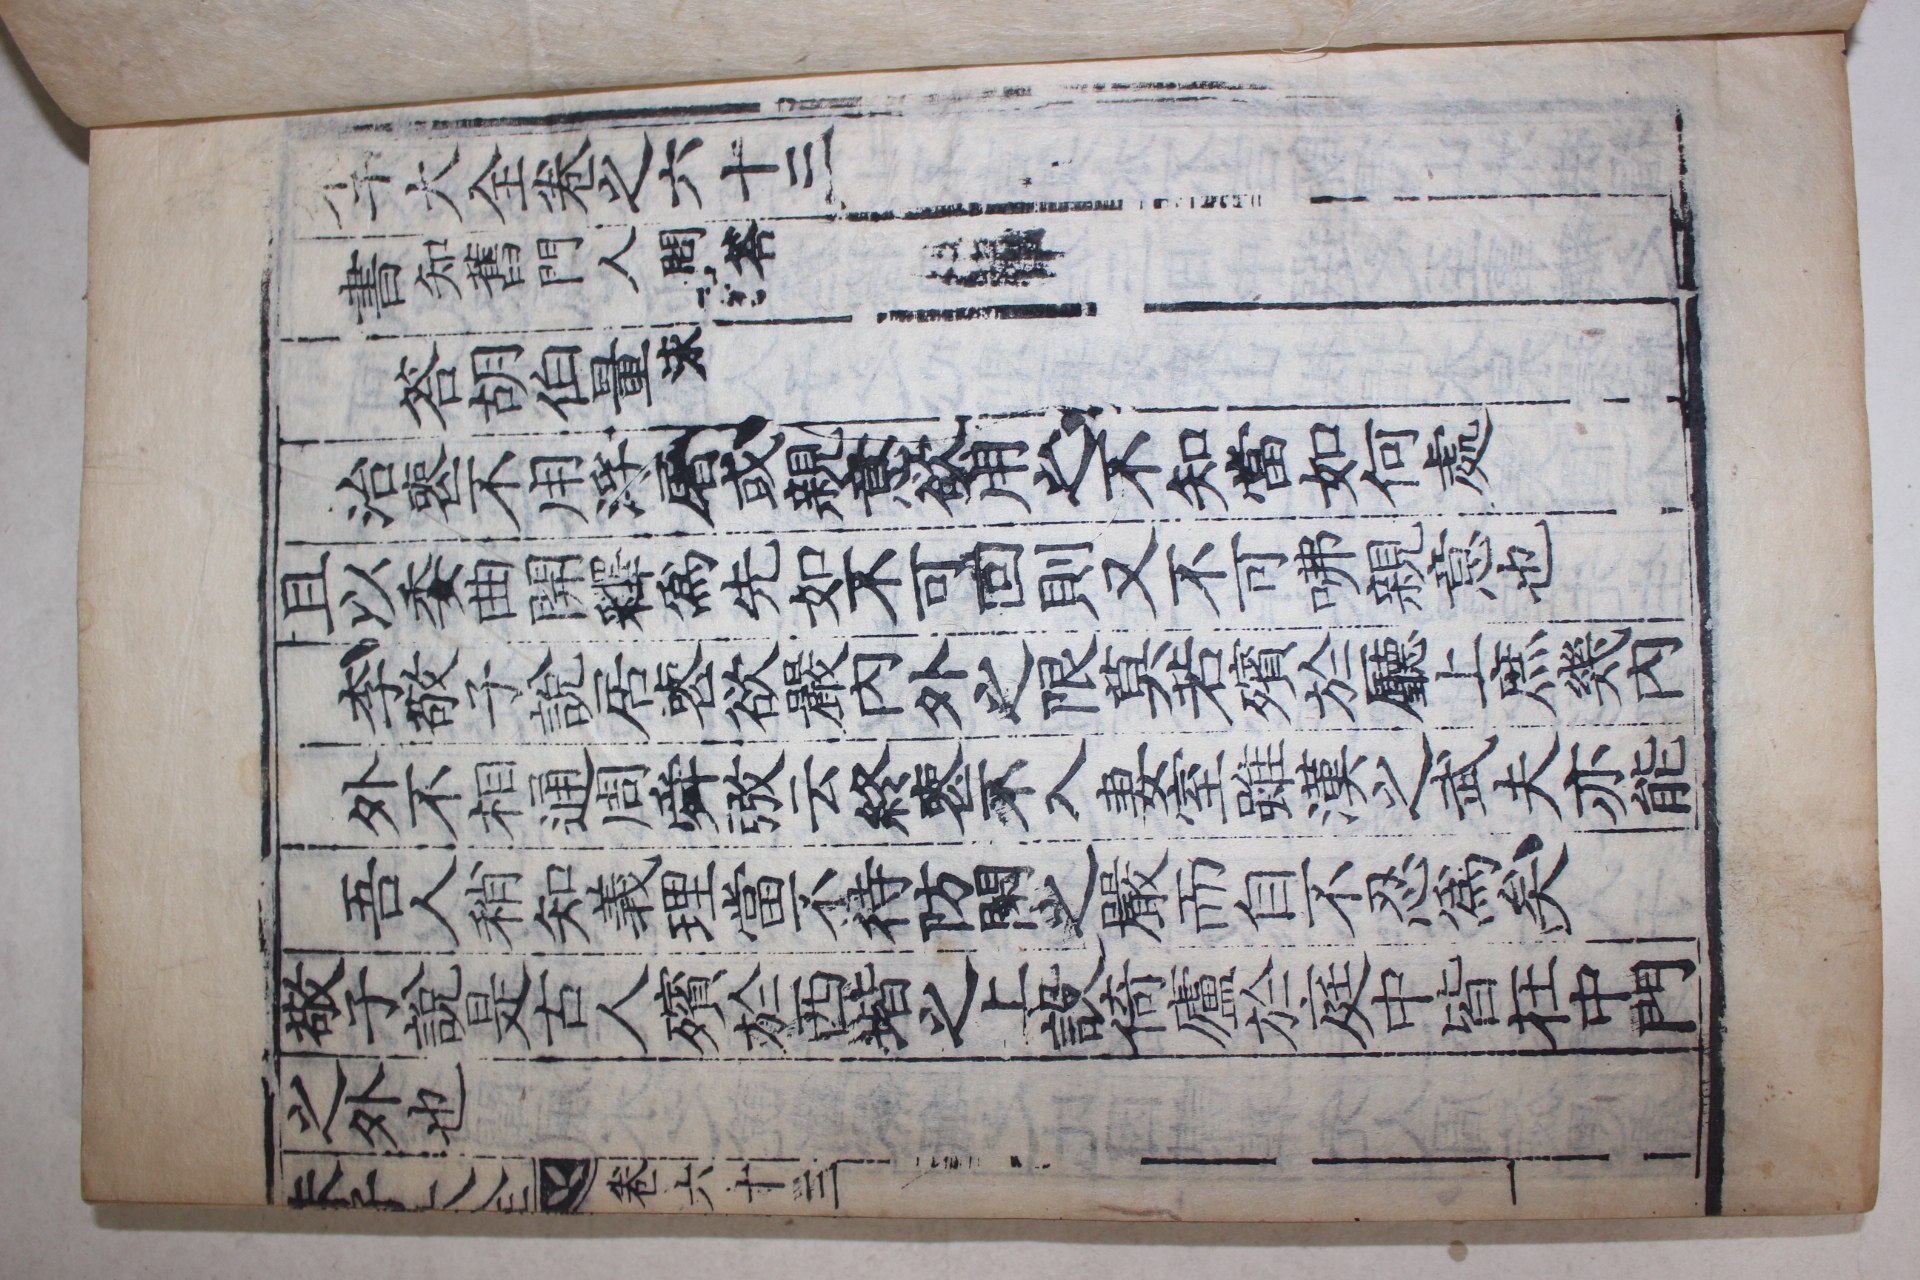 朱子大全卷之六十三
書知舊門人問答
答胡伯量泳
治喪不用浮屠或親意欲用之不知當如何處
且以委曲開釋爲先如不可回則又不可咈親意也
李敬子說居喪欲嚴內外之限莫若殯於廳上庶幾內
外不相通周舜弢云終喪不入妻室雖漢之武夫亦能
吾人稍知義理當不待防閑之嚴而自不忍爲矣
敬子說是古人殯於西堦之上設倚廬於庭中皆在中門
之外也
朱子大全
卷六十三
一